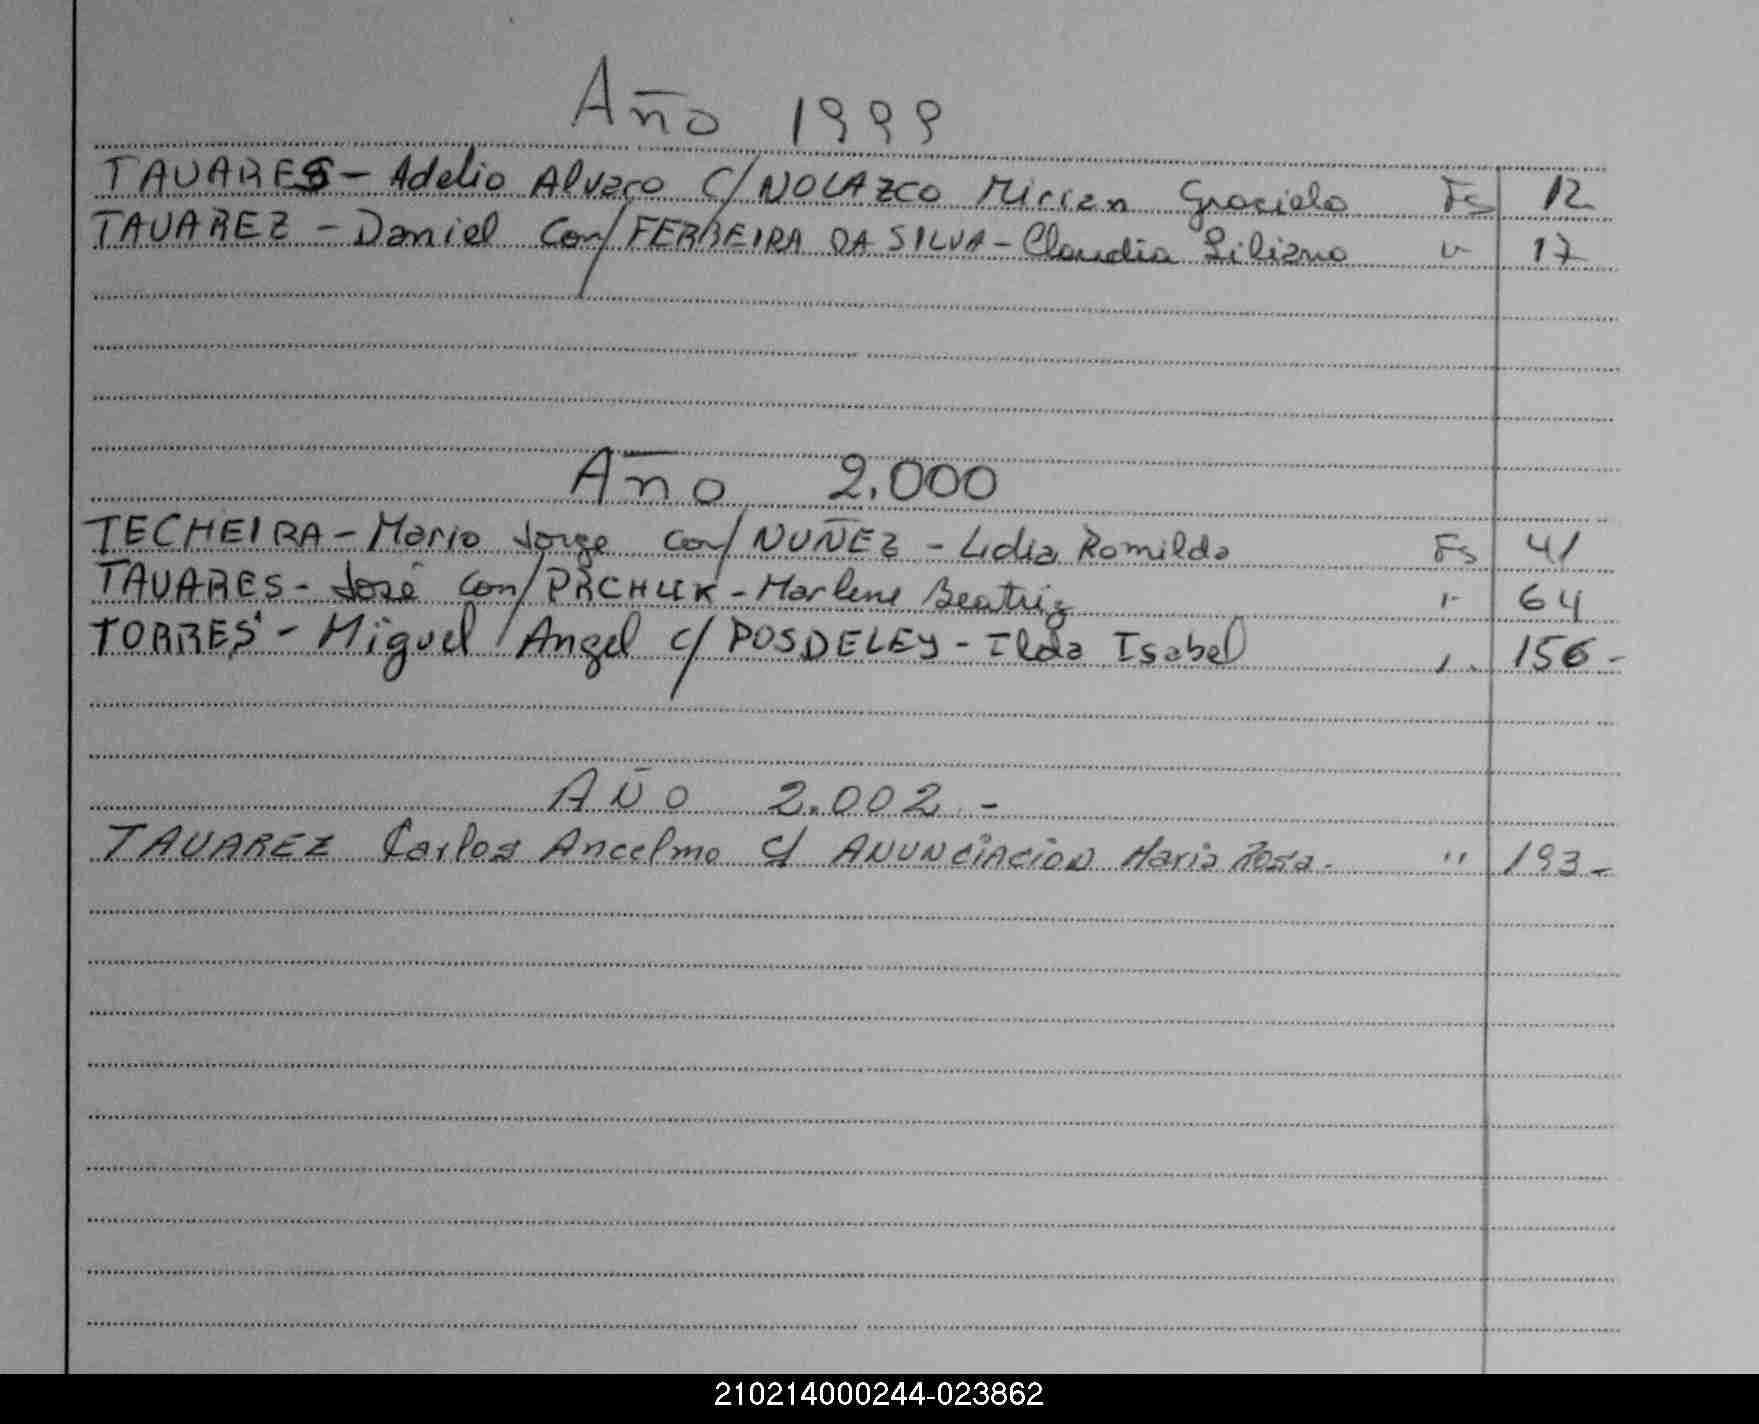 Año 1999
TAVARES - Adelio Alvaro C/ NOLAZCO Mirian Graciela Fs 12
TAVAREZ - Daniel Con/ FERREIRA DA SILVA - Claudia Liliana " 17
Año 2.000
TECHEIRA - Mario Jorge Con/ NUÑEZ - Lidia Romilda Fs 41
TAVARES - José Con/ - Marlene Beatriz " 64
TORRES - Miguel Angel c/ POSDELEY - Ilda Isabel " 156 -
AÑO 2.002 -
TAVAREZ Carlos Ancelmo c/ ANUNCIACION Maria Rosa. " 193 -
210214000244-023862